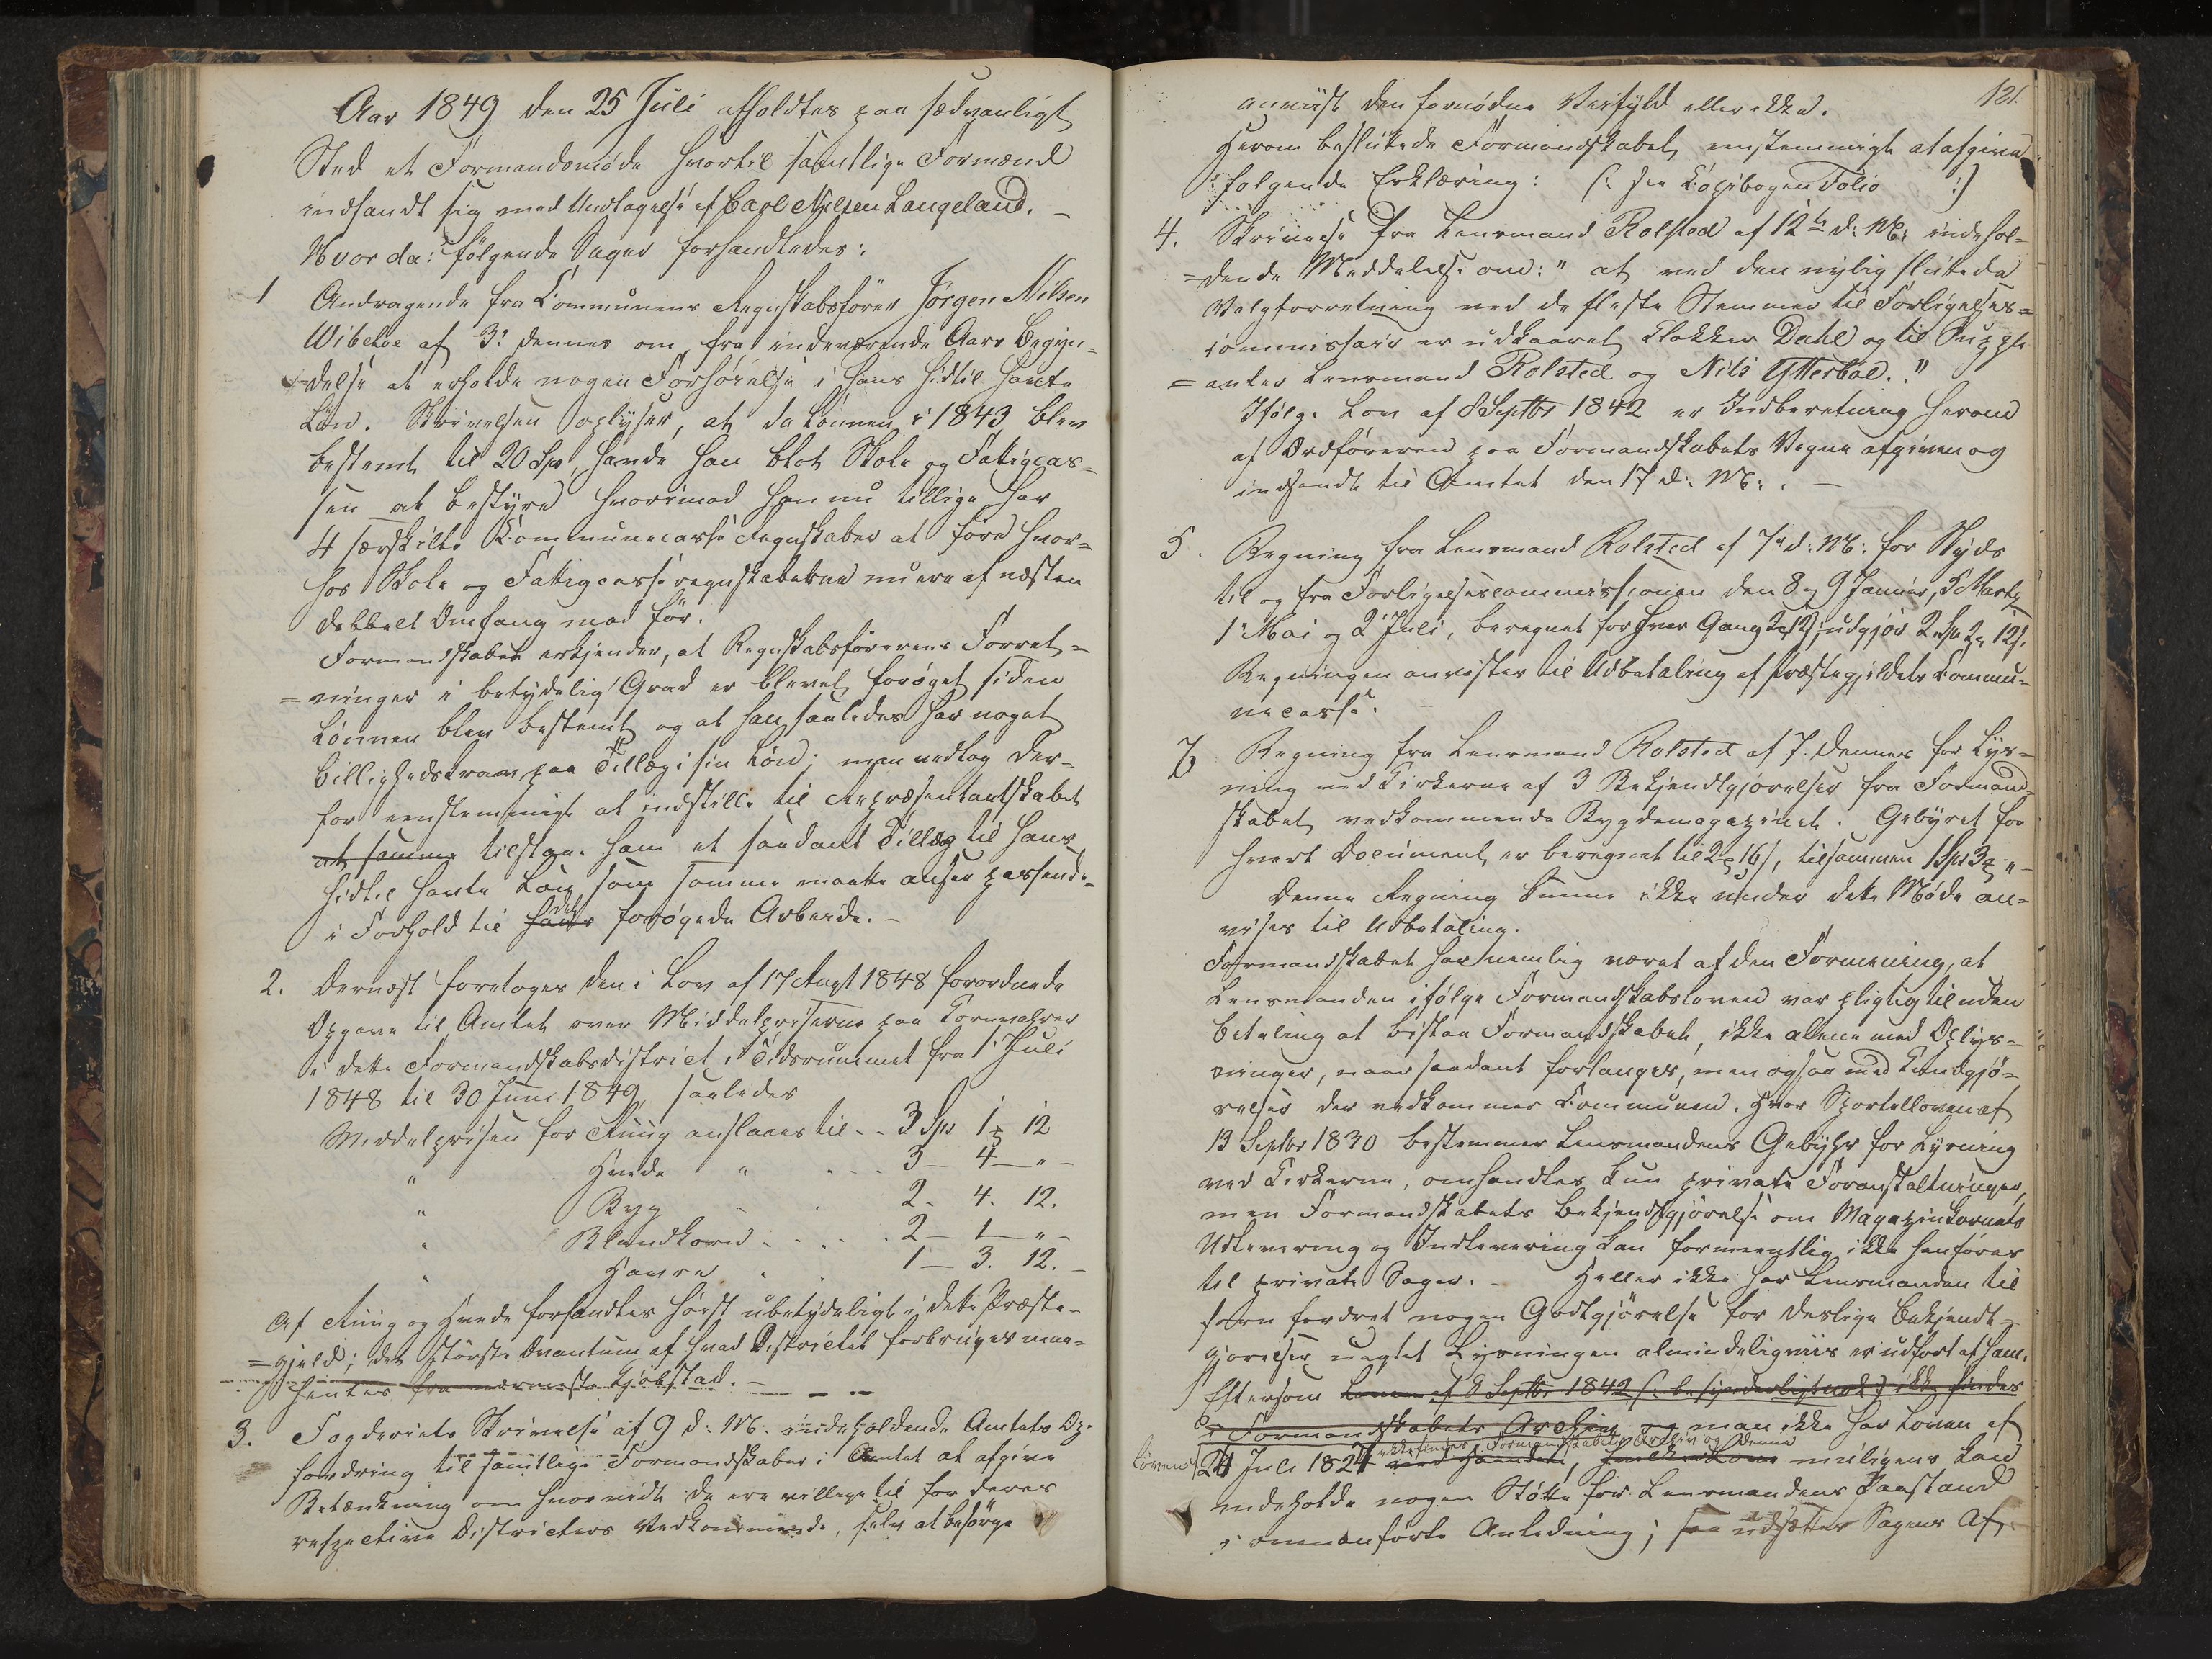 Aar 1849 den 25 Juli afholdtes paa sædvanligt
Sted et Formandsmøde hvortil samtlige Formænd
indfandt sig med Undtagelse af Carl Nilsen Langeland. –
Hvor da: følgende Sager forhandledes:
1 Andragende fra Communens Regnskabsfører Jørgen Nilsen
Wibetoe af 3: dennes om fra indeværende Aars Begyn-
-delse at erholde nogen Forhøielse i hans hidtil havte
Løn. Skrivelsen oplyser, at da Lønnen i 1843 blev
bestemt til 20 Spd, havde han blot Skole og Fattigcas-
sen at bestyre hvorimod han nu tillige har
4 særskilte Communecasse Regnskaber at føre hvor-
hos Skole og Fattigcasseregnskaberne nu ere af næsten
dobbelt Omfang mod før.
Formandskabet erkjender, at Regnskabsførerens Forret-
=ninger i betydelig Grad er blevet forøget siden
Lønnen blev bestemt og at han saaledes har noget
Billighedskrav paa Tillæg i sin Løn; man vedtog der-
for eenstemmigt at indstille til Repræsentantskabet
at samme tilstaae ham et saadant Tillæg til hans
hidtil havte Løn, som samme maatte ansee passende
i Forhold til hans det forøgede Arbeide. –
2. Dernæst foretoges den i Lov af 17 Augt 1848 forordnede
Opgave til Amtet over Middelpriserne paa Kornvarer
i dette Formandskabsdistrict i Tidsrummet fra 1 Juli
1848 til 30 Juni 1849, saaledes
Middelprisen for Rug anslaaes til - - 3 Spd 1 12
" Hvede " - - - 3 – 4 – " –
" Byg - - 2 - 4. 12.
" Blandkorn - - - - 2 – 1 – " –
" Havre - - 1 – 3. 12. –
Af Rug og Hvede forhandles høist ubetydeligt i dette Præste-
=gjeld; det største Qvantum af hvad Districtet forbruger maae
hentes fra nærmeste Kjøbstad. –
3. Fogderiets Skrivelse af 9 d: M: indeholdende Amtets Op-
fordring til samtlige Formandskaber i Amtet at afgive
Betænkning om hvorvidt de ere villige til for deres
respective Districters Vedkommende, selv at besørge
121.
anviist den fornødne Veifyld eller ikke.
Herom besluttede Formandskabet eenstemmigt at afgive
følgende Erklæring: (: see Kopibogen Folio :)
4. Skrivelse fra Lensmand Rolsted af 12te d: M: indehol-
=dende Meddelelse om: " at ved den nylig sluttede
Valgforretning ved de fleste Stemmer til Forligelses=
commissair er udkaaret Klokker Dahl og til Supple
=anter Lensmand Rolsted og Nils Ytterbøe. "
Ifølge Lov af 8 Septbr 1842 er Indberetning herom
af Ordføreren paa Formandskabets Vegne afgiven og
indsendt til Amtet den 17 d: M: . –
5. Regning fra Lensmand Rolsted af 7 d: M: for Skyds
til og fra Forligelsescommissionen den 8 og 9 Januar, 5 Marts
1 Mai og 2 Juli, beregnet for hver Gang 2 12 s; udgjør 2 Spd 2 12 s.
Regningen anvistes til Udbetaling af Præstegjeldets Commu-
necasse.
6 Regning fra Lensmand Rolsted af 7. dennes for Lys-
ning ved Kirkerne af 3 Bekjendtgjørelser fra Formand-
skabet vedkommende Bygdemagazinet. Gebyret for
hvert Document er beregnet til 2 16 s, tilsammen 1 Spd 3 " –
Denne Regning kunne ikke under dette Møde an-
vises til Udbetaling.
Formandskabet har nemlig været af den Formening, at
Lensmanden ifølge Formandskabsloven var pligtig til uden
Betaling at bistaae Formandskabet, ikke alene med Oplys-
ninger, naar saadant forlanges, men ogsaa med Kundgjø-
relser der vedkommer Communen. Hvor Sportelloven af
13 Septbr 1830 bestemmer Lensmandens Gebyhr for Lysning
ved Kirkerne, omhandles kun private Foranstaltninger,
men Formandskabets Bekjendtgjørelse om Magazinkornets
Udlevering og Indlevering kan formeentlig ikke henføres
til private Sager. – Heller ikke har Lensmanden til
forn fordret nogen Godtgjørelse for deslige Bekjendt-
gjørelser uagtet Lysningen almindeligviis er udført af ham.
Eftersom Loven af 8 Septbr 1842 (: besynderligt nok :) ikke findes
i Formandskabets Archiv og man ikke har Loven af
ikke findes i Formandskabets Archiv og denne
Loven 24 Juli 1827 ved Haanden, muligens kan
indeholde nogen Støtte for Lensmandens Paastand
i ovenanførte Anledning; saa udsættes Sagens Af-